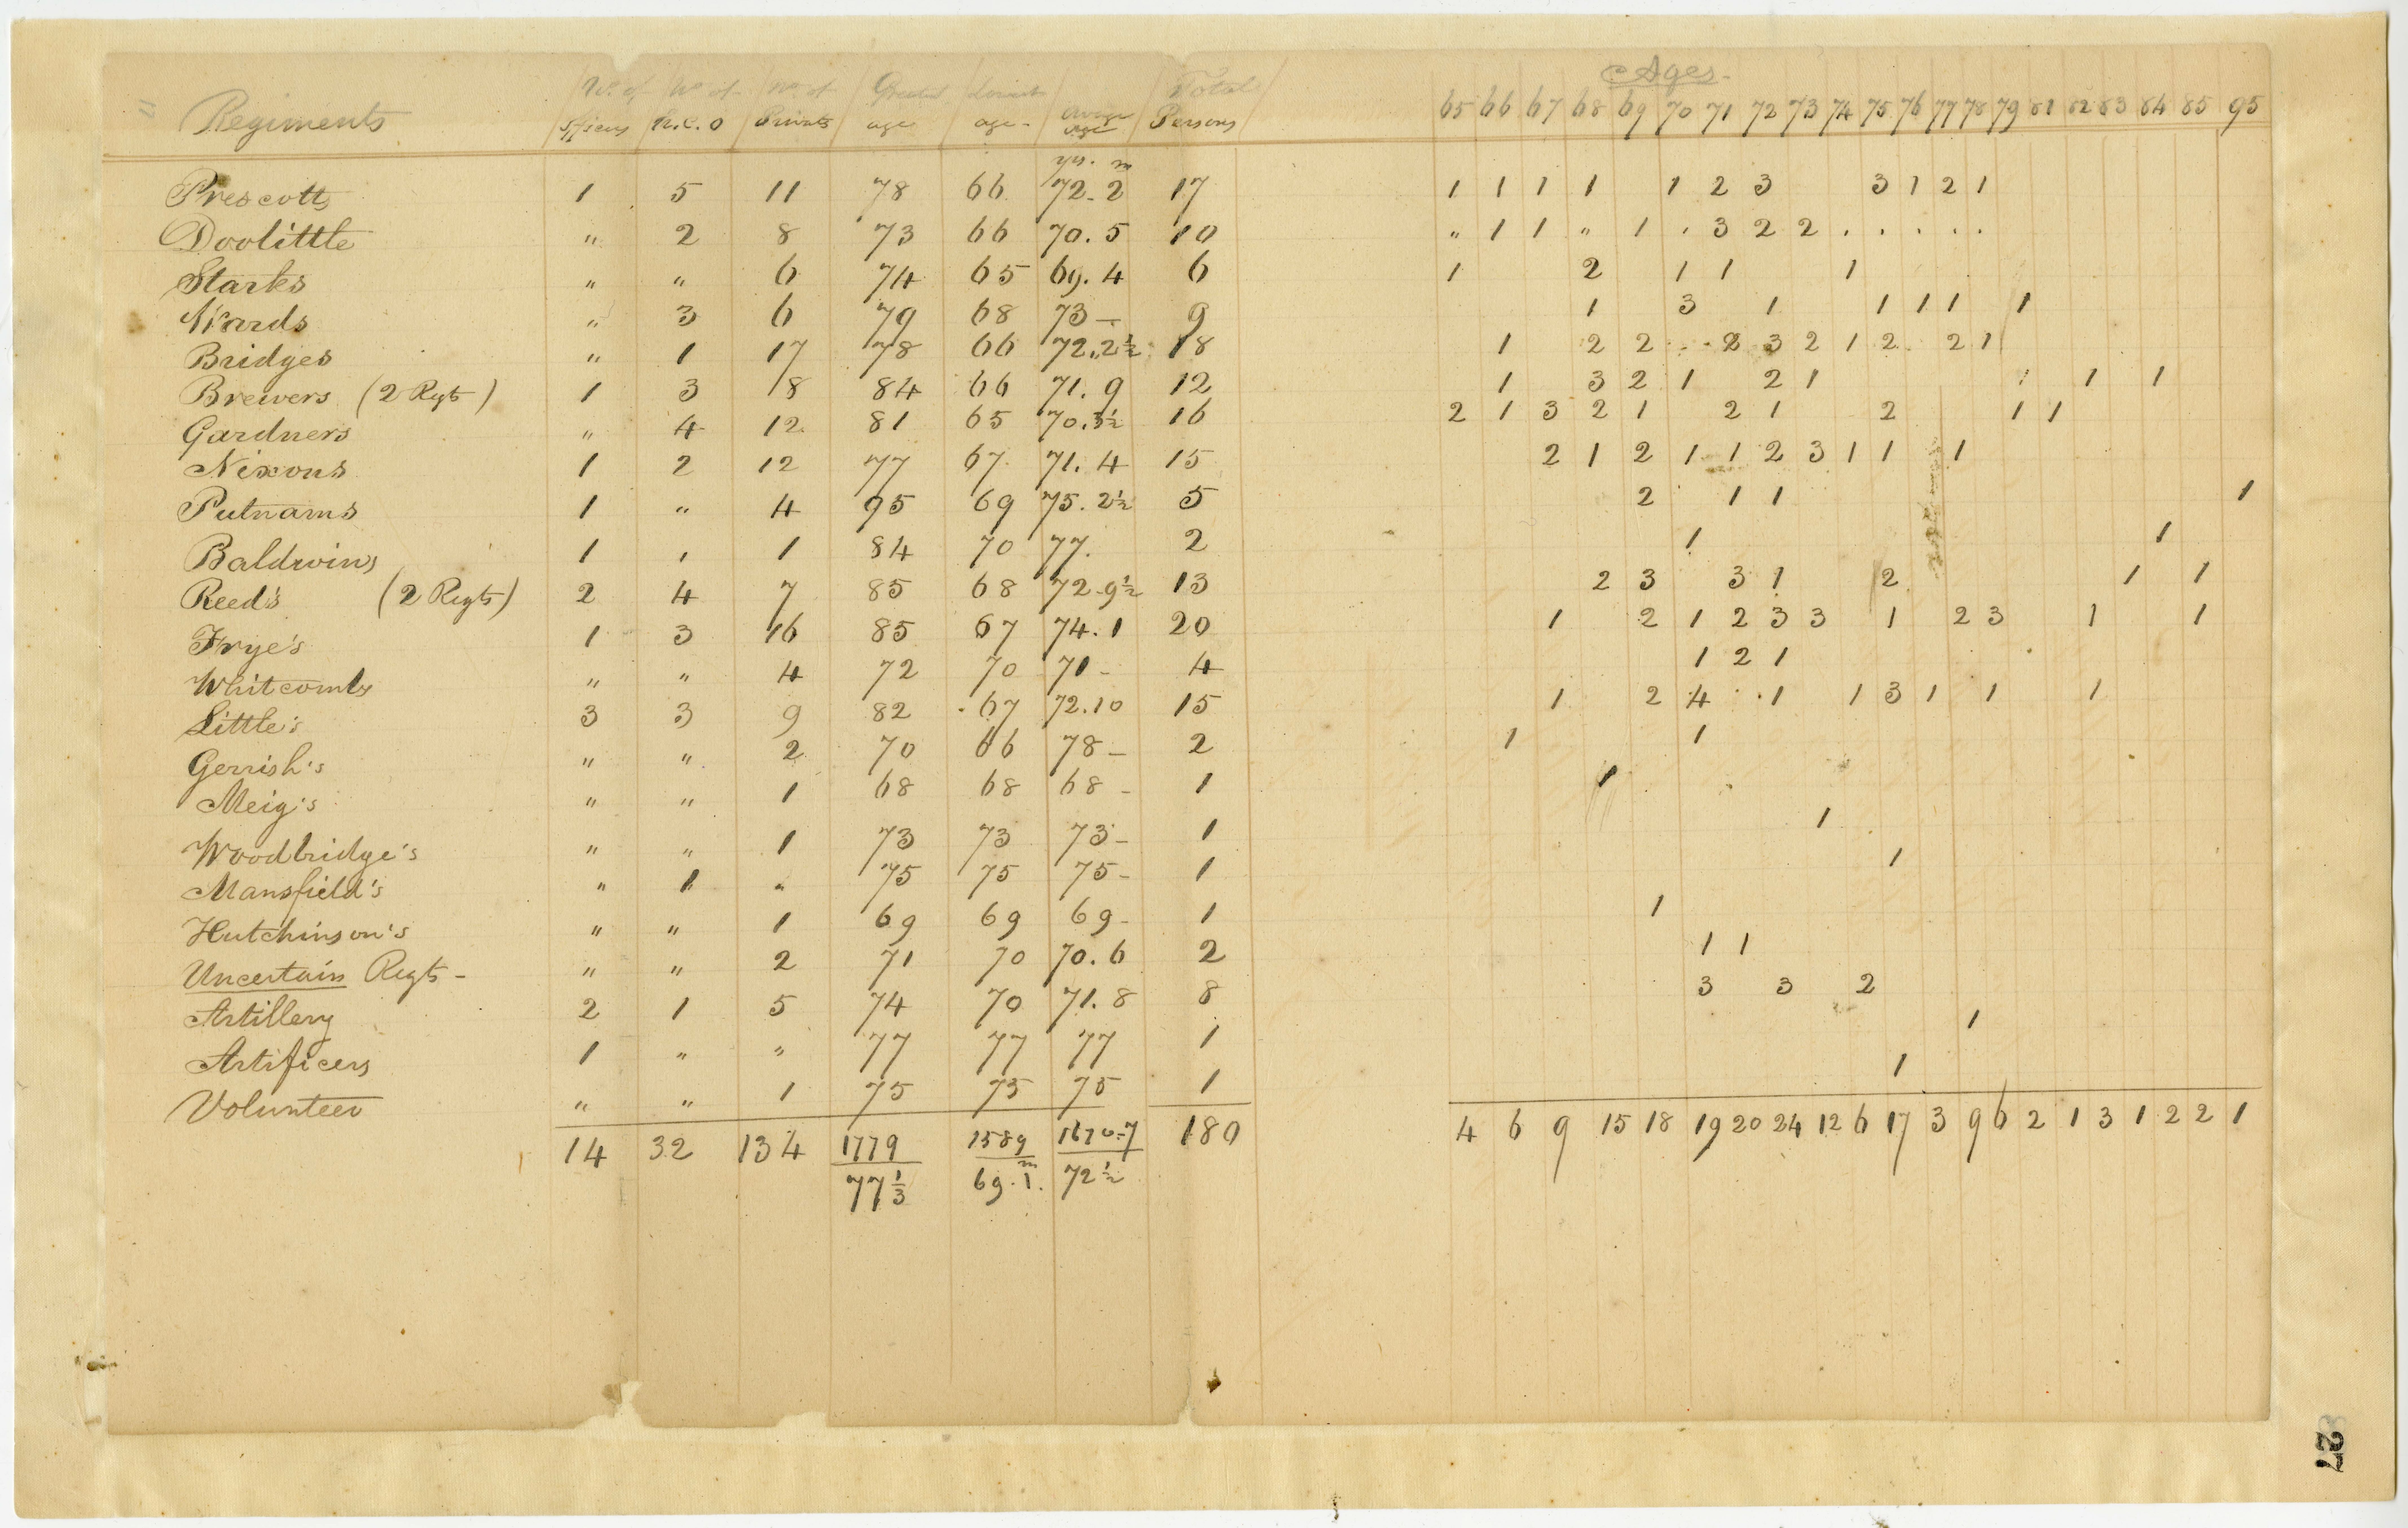 Ages.
Regiments No. of officers No. of N.C.O No. of Privates Greatest age Lowest age. Average age Total Persons 65 66 67 68 69 70 71 72 73 74 75 76 77 78 79 81 82 83 84 85 95
yrs. m
Prescotts 1 5 11 78 66 72-2 17 1 1 1 1 1 2 3 3 1 2 1
Doolittle " 2 8 73 66 70.5 10 " 1 1 " 1 . 3 2 2 . . . . .
Starks " " 6 74 65 69.4 6 1 2 1 1 1
Wards " 3 6 79 68 73 — 9 1 3 1 1 1 1 1
Bridges " 1 17 78 66 72..2½ 18 1 2 2 . . 2 3 2 1 2 2 1
Brewers (2 Rgts) 1 3 8 84 66 71.9 12 1 3 2 1 2 1 1 1
Gardners " 4 12 81 65 70.3½ 16 2 1 3 2 1 2 1 2 1 1
Nixons 1 2 12 77 67 71.4 15 2 1 2 1 1 2 3 1 1 1
Putnams 1 " 4 95 69 75.2½ 5 2 1 1 1
Baldwins 1 , 1 84 70 77. 2 1 1
Reed's (2 Regts) 2 4 7 85 68 72-9½ 13 2 3 3 1 2 1 1
Frye's 1 3 16 85 67 74.1 20 1 2 1 2 3 3 1 2 3 1 1
Whitcombs " " 4 72 70 71 - 4 1 2 1
Little's 3 3 9 82 67 72.10 15 1 2 4 . . 1 1 3 1 1 1
Gerrish's " " 2 70 66 78 — 2 1 1
Meig's " " 1 68 68 68 - 1 1
Woodbridge's " " 1 73 73 73 - 1 1
Mansfield's " 1 " 75 75 75 - 1 1
Hutchinson's " " 1 69 69 69 - 1 1
Uncertain Regts - " " 2 71 70 70.6 2 1 1
Artillery 2 1 5 74 70 71.8 8 3 3 2
Artificers 1 " " 77 77 77 1 1
Volunteer " " 1 75 75 75 1 1
14 32 134 1779 1589 1670=7 180 4 6 9 15 18 19 20 24 12 6 17 3 9 6 2 1 3 1 2 2 1
77⅓ 69.1.m 72½
27